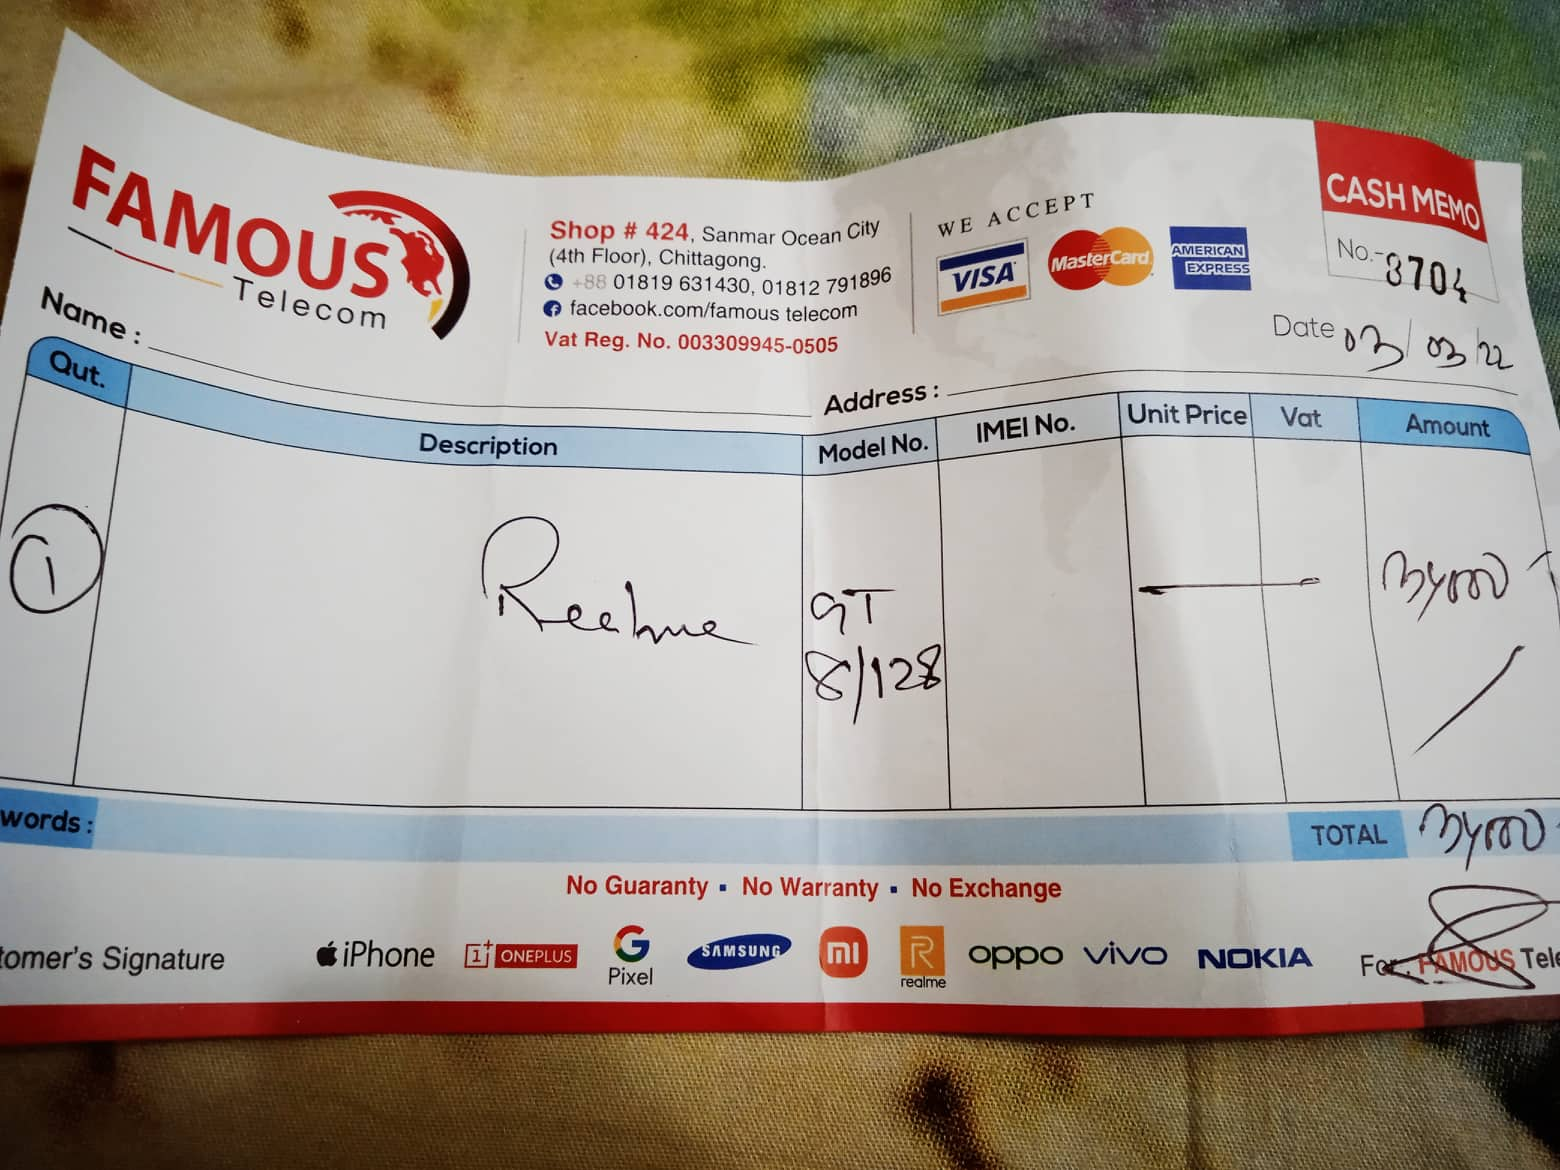 FAMOUS
Telecom
Shop # 424, Sanmar Ocean City
(4th Floor), Chittagong.
+88 01819 631430, 01812 791896
facebook.com/famous telecom
Vat Reg. No. 003309945-0505
WE ACCEPT
VISA
MasterCard
AMERICAN
EXPRESS
CASH MEMO
No.- 3704
Date 03/03/22
Name :
Address :
Qut. Description Model No. IMEI No. Unit Price Vat Amount
1 Realme GT
8/128
words :
TOTAL
No Guaranty ▪ No Warranty ▪ No Exchange
tomer's Signature
iPhone
1+ ONEPLUS
G
Pixel
SAMSUNG
mi
R
realme
oppo
vivo
NOKIA
For, FAMOUS Tele